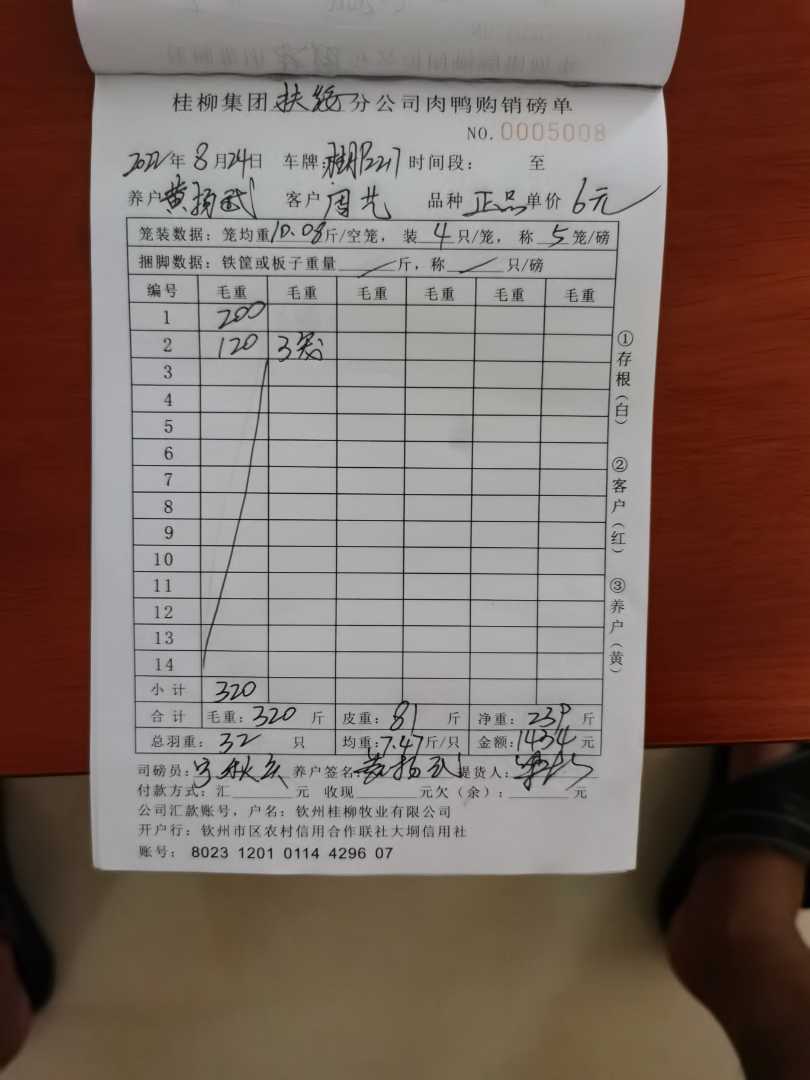 桂柳集团扶绥分公司肉鸭购销磅单
NO.0005008
2022年8月24日 车牌: 时间段: 至
养户黄扬武 客户周芃 品种正品单价6元
笼装数据:笼均重10.08斤/空笼,装4只/笼,称5笼/磅
捆脚数据:铁筐或板子重量/斤,称/只/磅
编号 毛重 毛重 毛重 毛重 毛重 毛重
1 200
2 120 3笼
3
4
5
6
7
8
9
10
11
12
13
14
小计 320
合计 毛重:320斤 皮重:81斤 净重:239斤
总羽重:32只 均重:7.47斤/只 金额:1434元
司磅员: 养户签名黄扬武提货人:
付款方式:汇 元 收现 元欠(余): 元
公司汇款账号,户名:钦州桂柳牧业有限公司
开户行:钦州市区农村信用合作联社大垌信用社
账号: 8023 1201 0114 4296 07
①存根(白) ②客户(红) ③养户(黄)